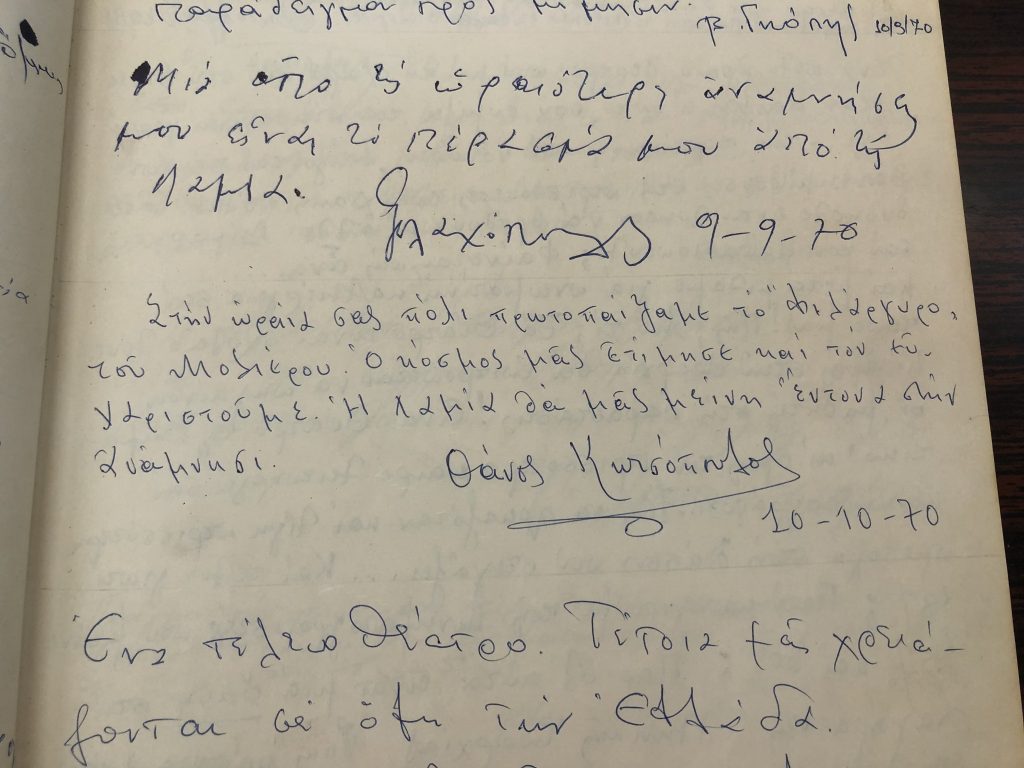 παράδειγμα πρὸς μίμησιν.
10/9/70
Μιά ἀπό τίς ὡραιότερες ἀναμνήσεις
μου εἶναι τό πέρασμά μου ἀπό τή
Λαμία.
9-9-70
Στήν ὡραία σας πόλι πρωτοπαίξαμε τό "Φιλάργυρο"
τοῦ Μολιέρου. Ὁ κόσμος μᾶς ἐτίμησε καί τόν εὐ-
χαριστοῦμε. Ἡ Λαμία θά μᾶς μείνη ἔντονα στήν
ἀνάμνησι.
Θάνος Κωτσόπουλος
10-10-70
Ἕνα τέλειο θέατρο. Τέτοια μᾶς χρειά-
ζονται σέ ὅλη τήν Ἑλλάδα.